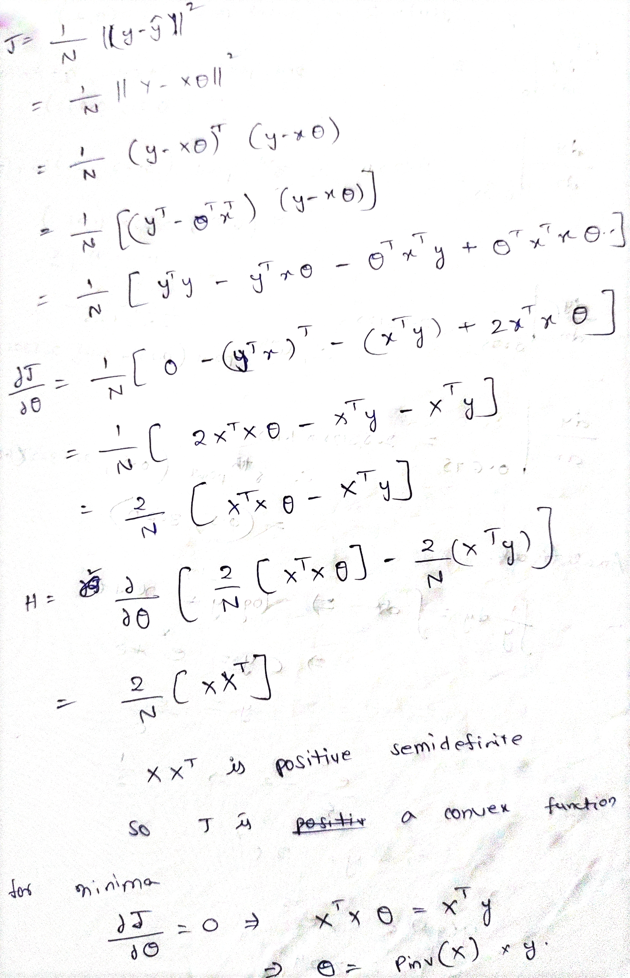 J = 1/N ||(y-ŷ)||²
= 1/N || Y - xθ||²
= 1/N (y-xθ)ᵀ (y-xθ)
= 1/N [(yᵀ-θᵀxᵀ) (y-xθ)]
= 1/N [yᵀy - yᵀxθ - θᵀxᵀy + θᵀxᵀxθ.]
∂J/∂θ = 1/N [0 - (yᵀx)ᵀ - (xᵀy) + 2xᵀxθ]
= 1/N [2xᵀxθ - xᵀy - xᵀy]
= 2/N [xᵀxθ - xᵀy]
H = ∂/∂θ [2/N [xᵀxθ] - 2/N (xᵀy)]
= 2/N [xxᵀ]
xxᵀ is positive semidefinite
so J is positiv a convex function
for minima
∂J/∂θ = 0 ⇒ xᵀxθ = xᵀy
⇒ θ = Pinv(x) × y.